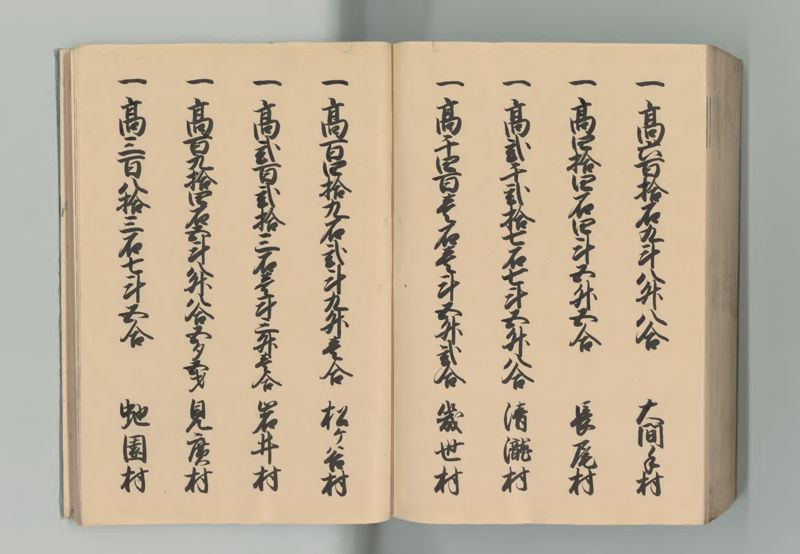 一 高六百拾石九斗八升八合 大間手村
一 高四拾四石四斗五升五合 長尾村
一 高弐千弐拾七石七斗五升八合 清瀧村
一 高千四百壱石壱斗五升弐合 幾世村
一 高百四拾九石弐斗九升壱合 松ヶ谷村
一 高弐百弐拾三石壱斗二升壱合 岩井村
一 高百九拾四石壱斗八升八合五夕 見廣村
一 高三百八拾三石七斗五合 蛇園村